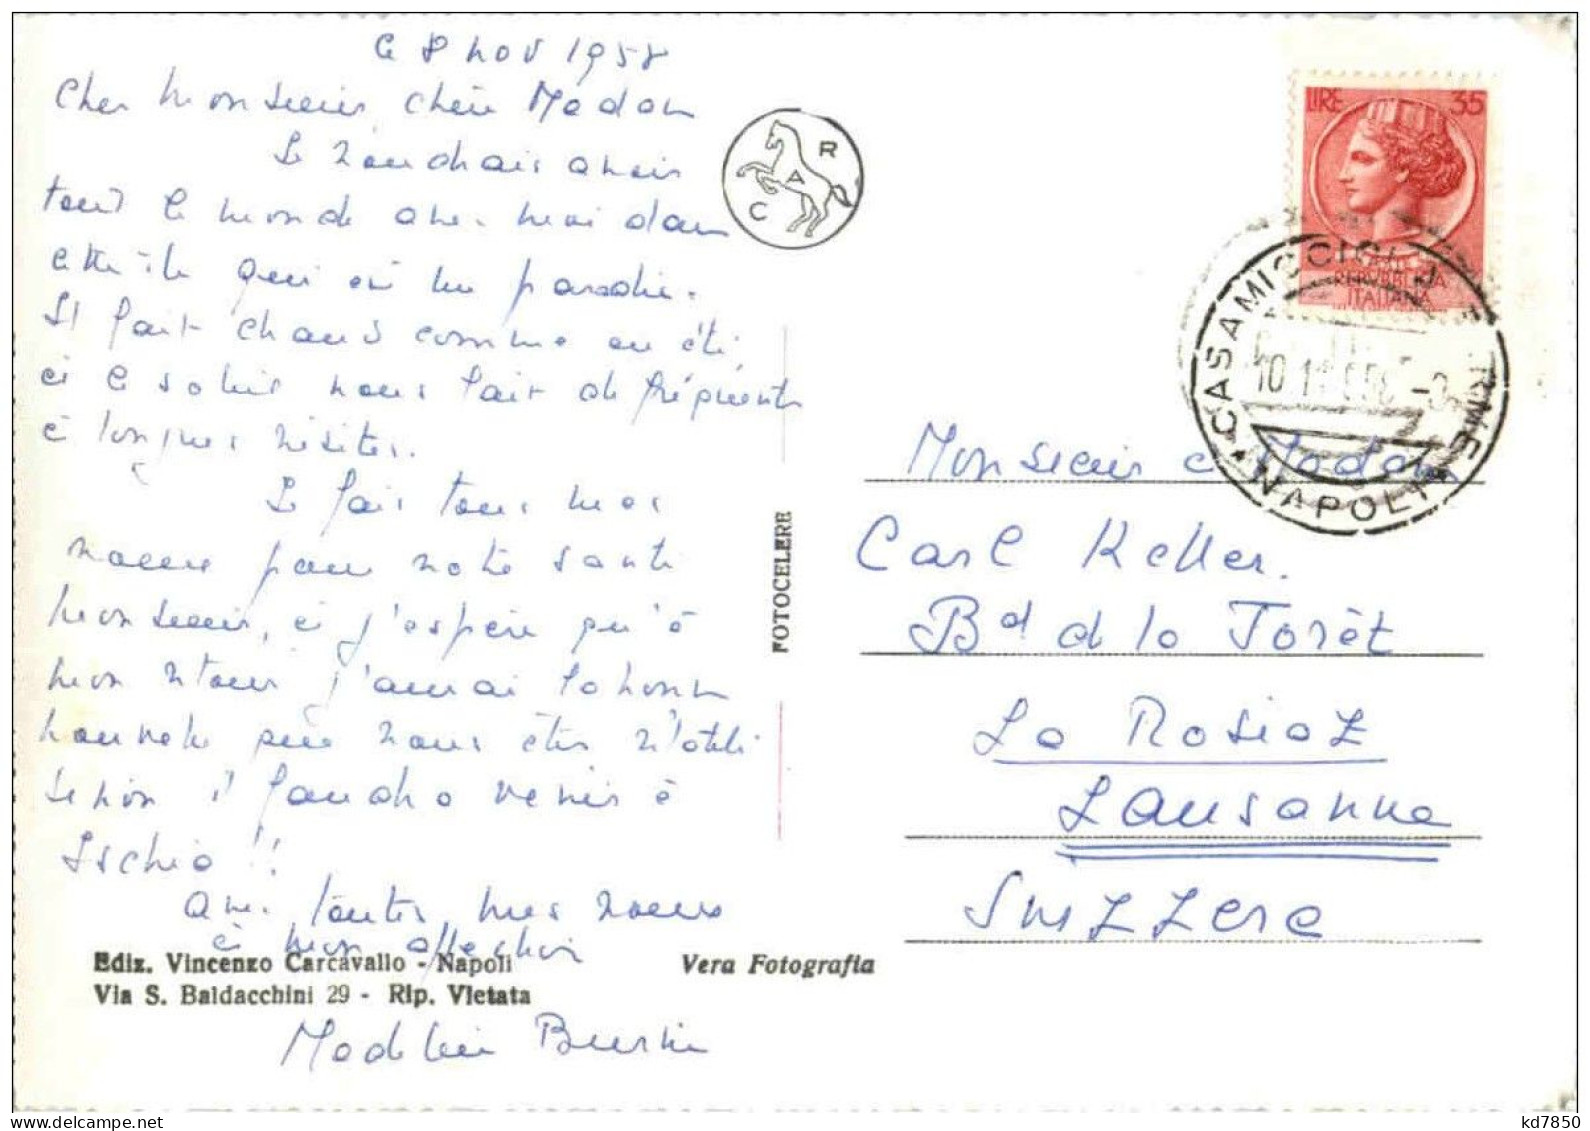 le 8 nov 1958
Cher Monsieur, chère Madame
Je voudrais avoir
tout le monde avec moi dans
cette île qui est un paradis.
Il fait chaud comme en été,
et le soleil nous fait de fréquentes
et longues visites.
Je fais tous mes
vœux pour votre santé
Monsieur, et j'espère qu'à
mon retour j'aurai la bonne
nouvelle que vous êtes rétabli
sinon il faudra venir à
Ischia !!
Avec toutes mes vœux
et mon affection
Ediz. Vincenzo Carcavallo - Napoli
Via S. Baldacchini 29 - Rip. Vietata
Vera Fotografia
FOTOCELERE
C A R
LIRE 35
REPUBBLICA
ITALIANA
CASAMICCIOLA TERME
NAPOLI
Monsieur et Madame
Carl Keller.
Bd de la Forêt
La Rosiaz
Lausanne
Suizzera